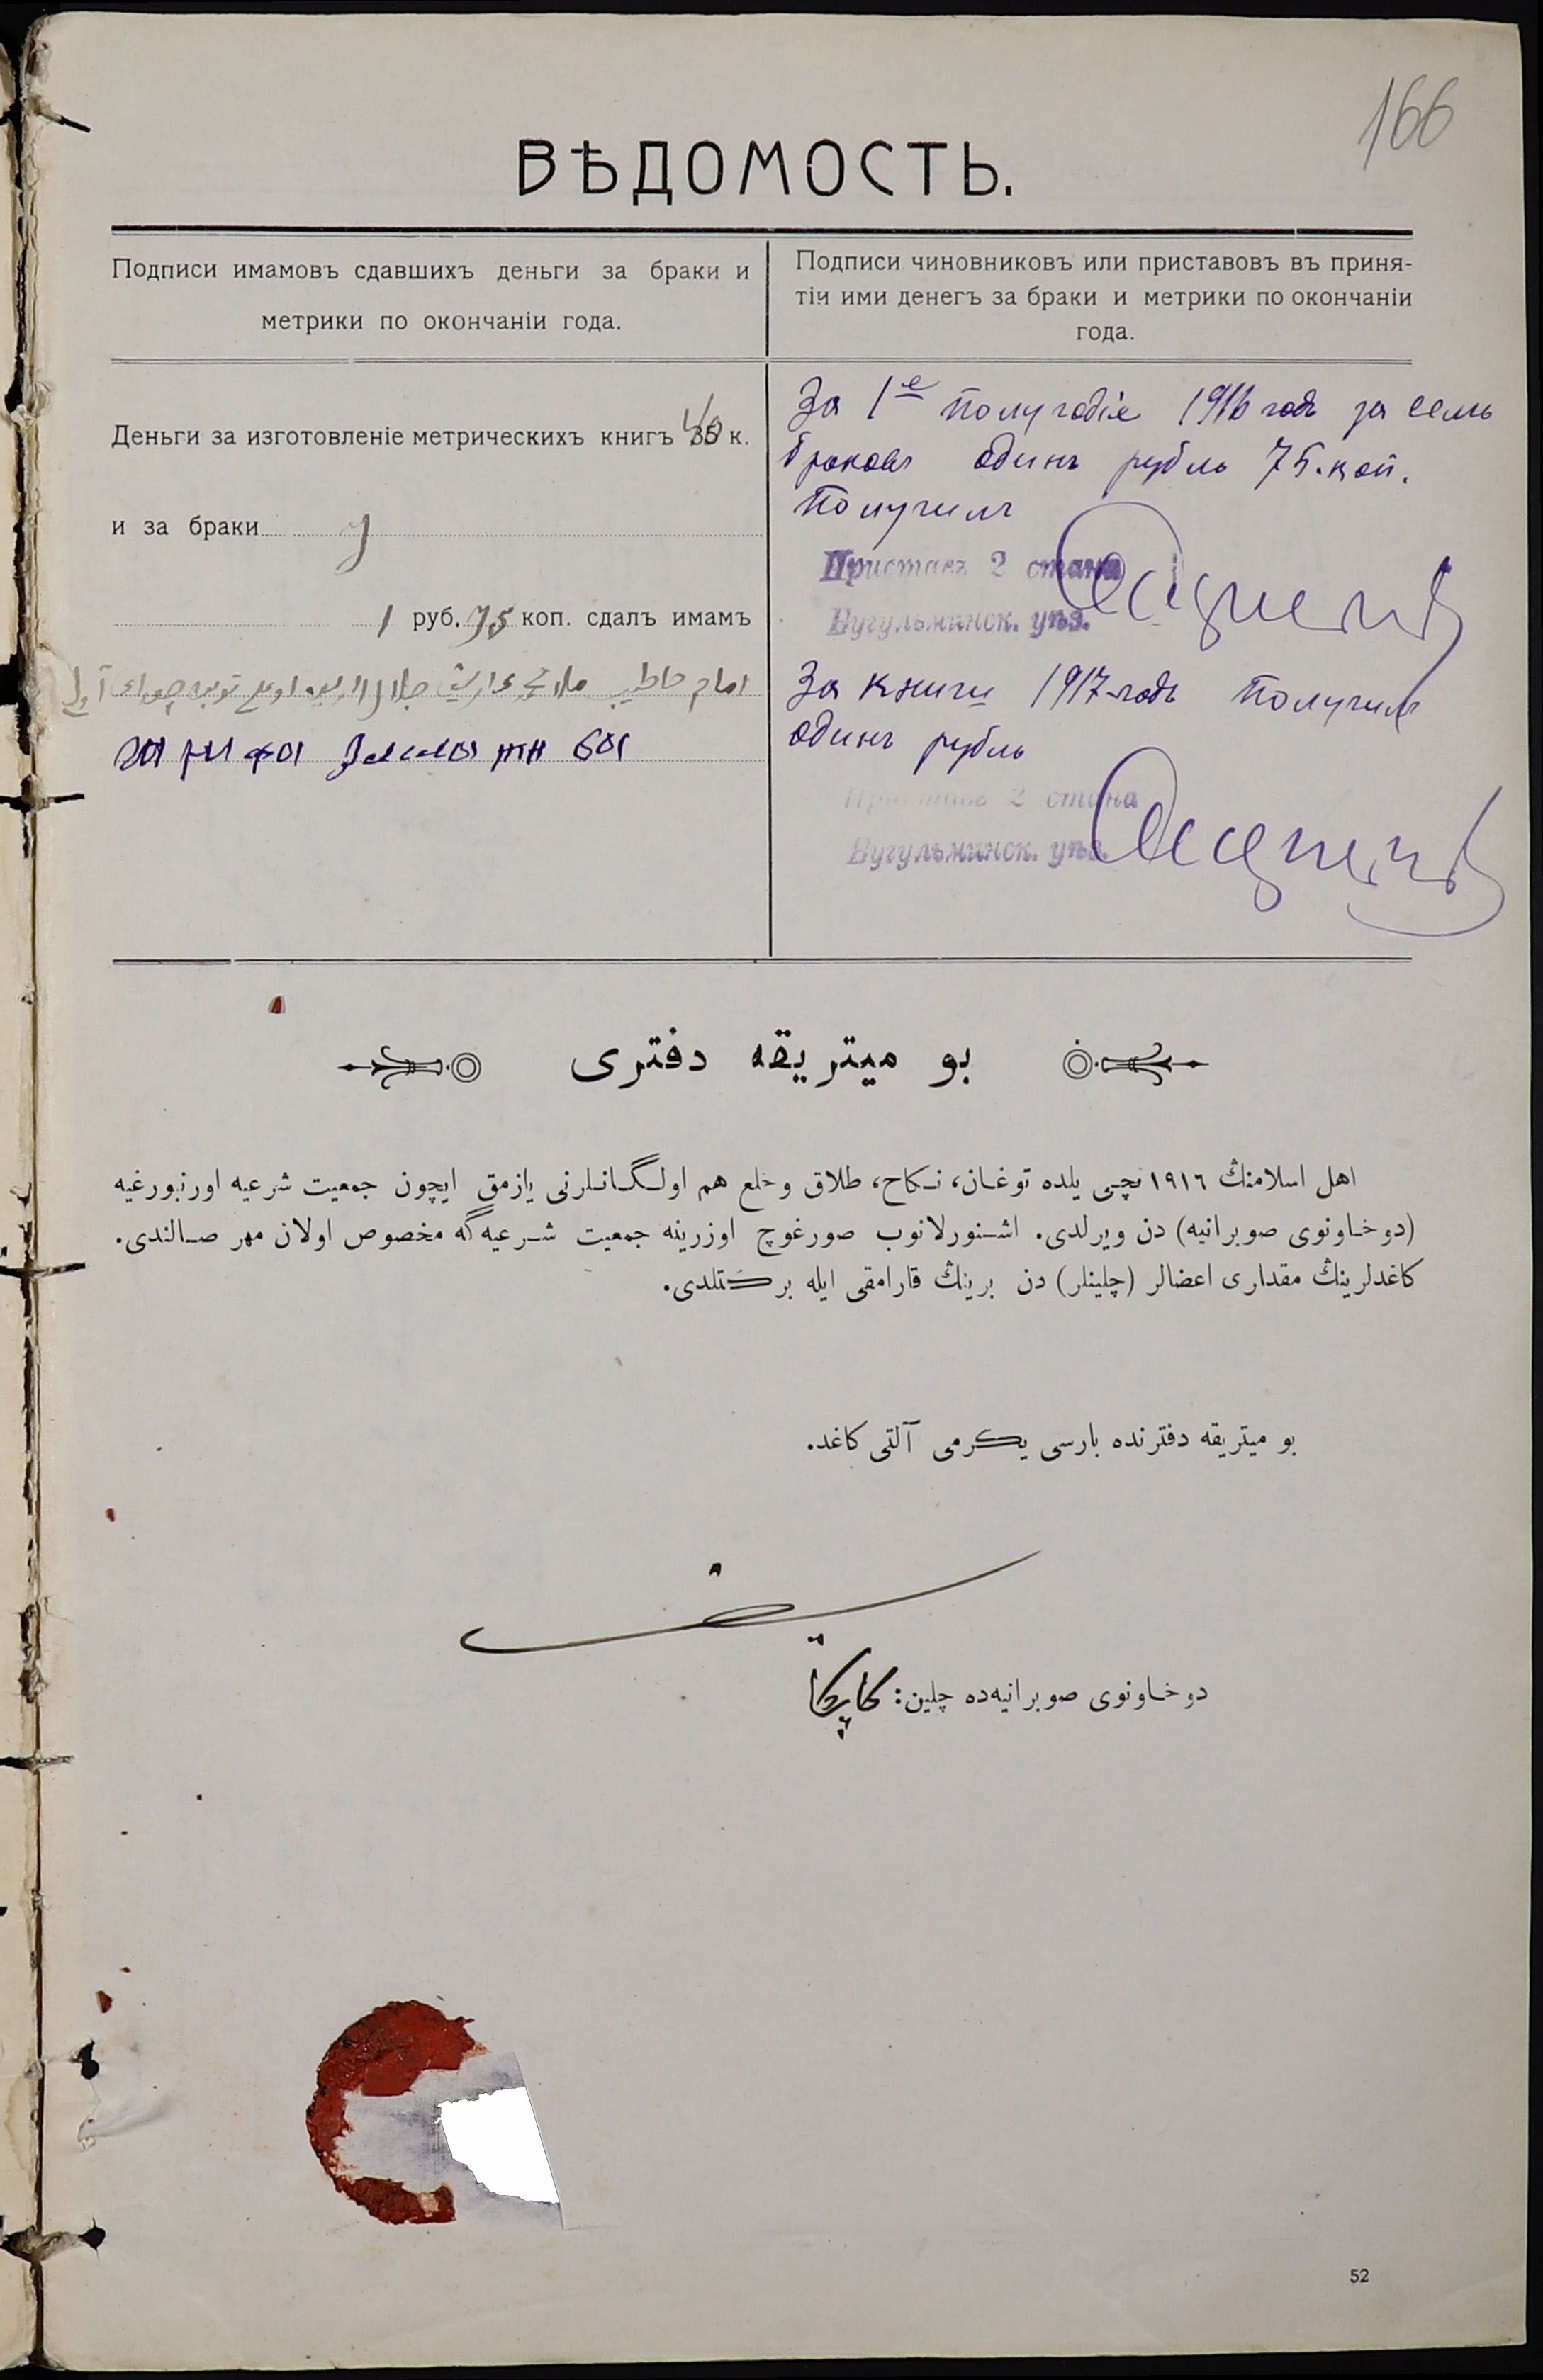 166
ВѢДОМОСТЬ.
Подписи имамовъ сдавшихъ деньги за браки и
метрики по окончаніи года.
Подписи чиновниковъ или приставовъ въ приня-
тіи ими денегъ за браки и метрики по окончаніи
года.
Деньги за изготовленіе метрическихъ книгъ 35 к.
и за браки
1 руб. 75 коп. сдалъ имамъ
امام خاطيب ملا
За 1е полугодіе 1916 годъ за семь
браковъ одинъ рубль 75. коп.
Получилъ
Приставъ 2 стана
Бугульминск. уѣз.
За книги 1917 годъ Получилъ
одинъ рубль
Приставъ 2 стана
Бугульминск. уѣз.
بو ميتريقه دفترى
اهل اسلامنڭ ١٩١٦ نچى يلده توغان، نكاح، طلاق وخلع هم اولگانلرنى يازمق ايچون جمعيت شرعيه اورنبورغيه
(دوخاونوى صوبرانيه) دن ويرلدى. اشنورلانوب صورغوچ اوزرينه جمعيت شرعيه‌گه مخصوص اولان مهر صالندى.
كاغدلرينڭ مقدارى اعضالر (چلينلر) دن برينڭ قارامقى ايله بركتلدى.
بو ميتريقه دفترنده بارسى يكرمى آلتى كاغد.
دوخاونوى صوبرانيه‌ده چلين:
52